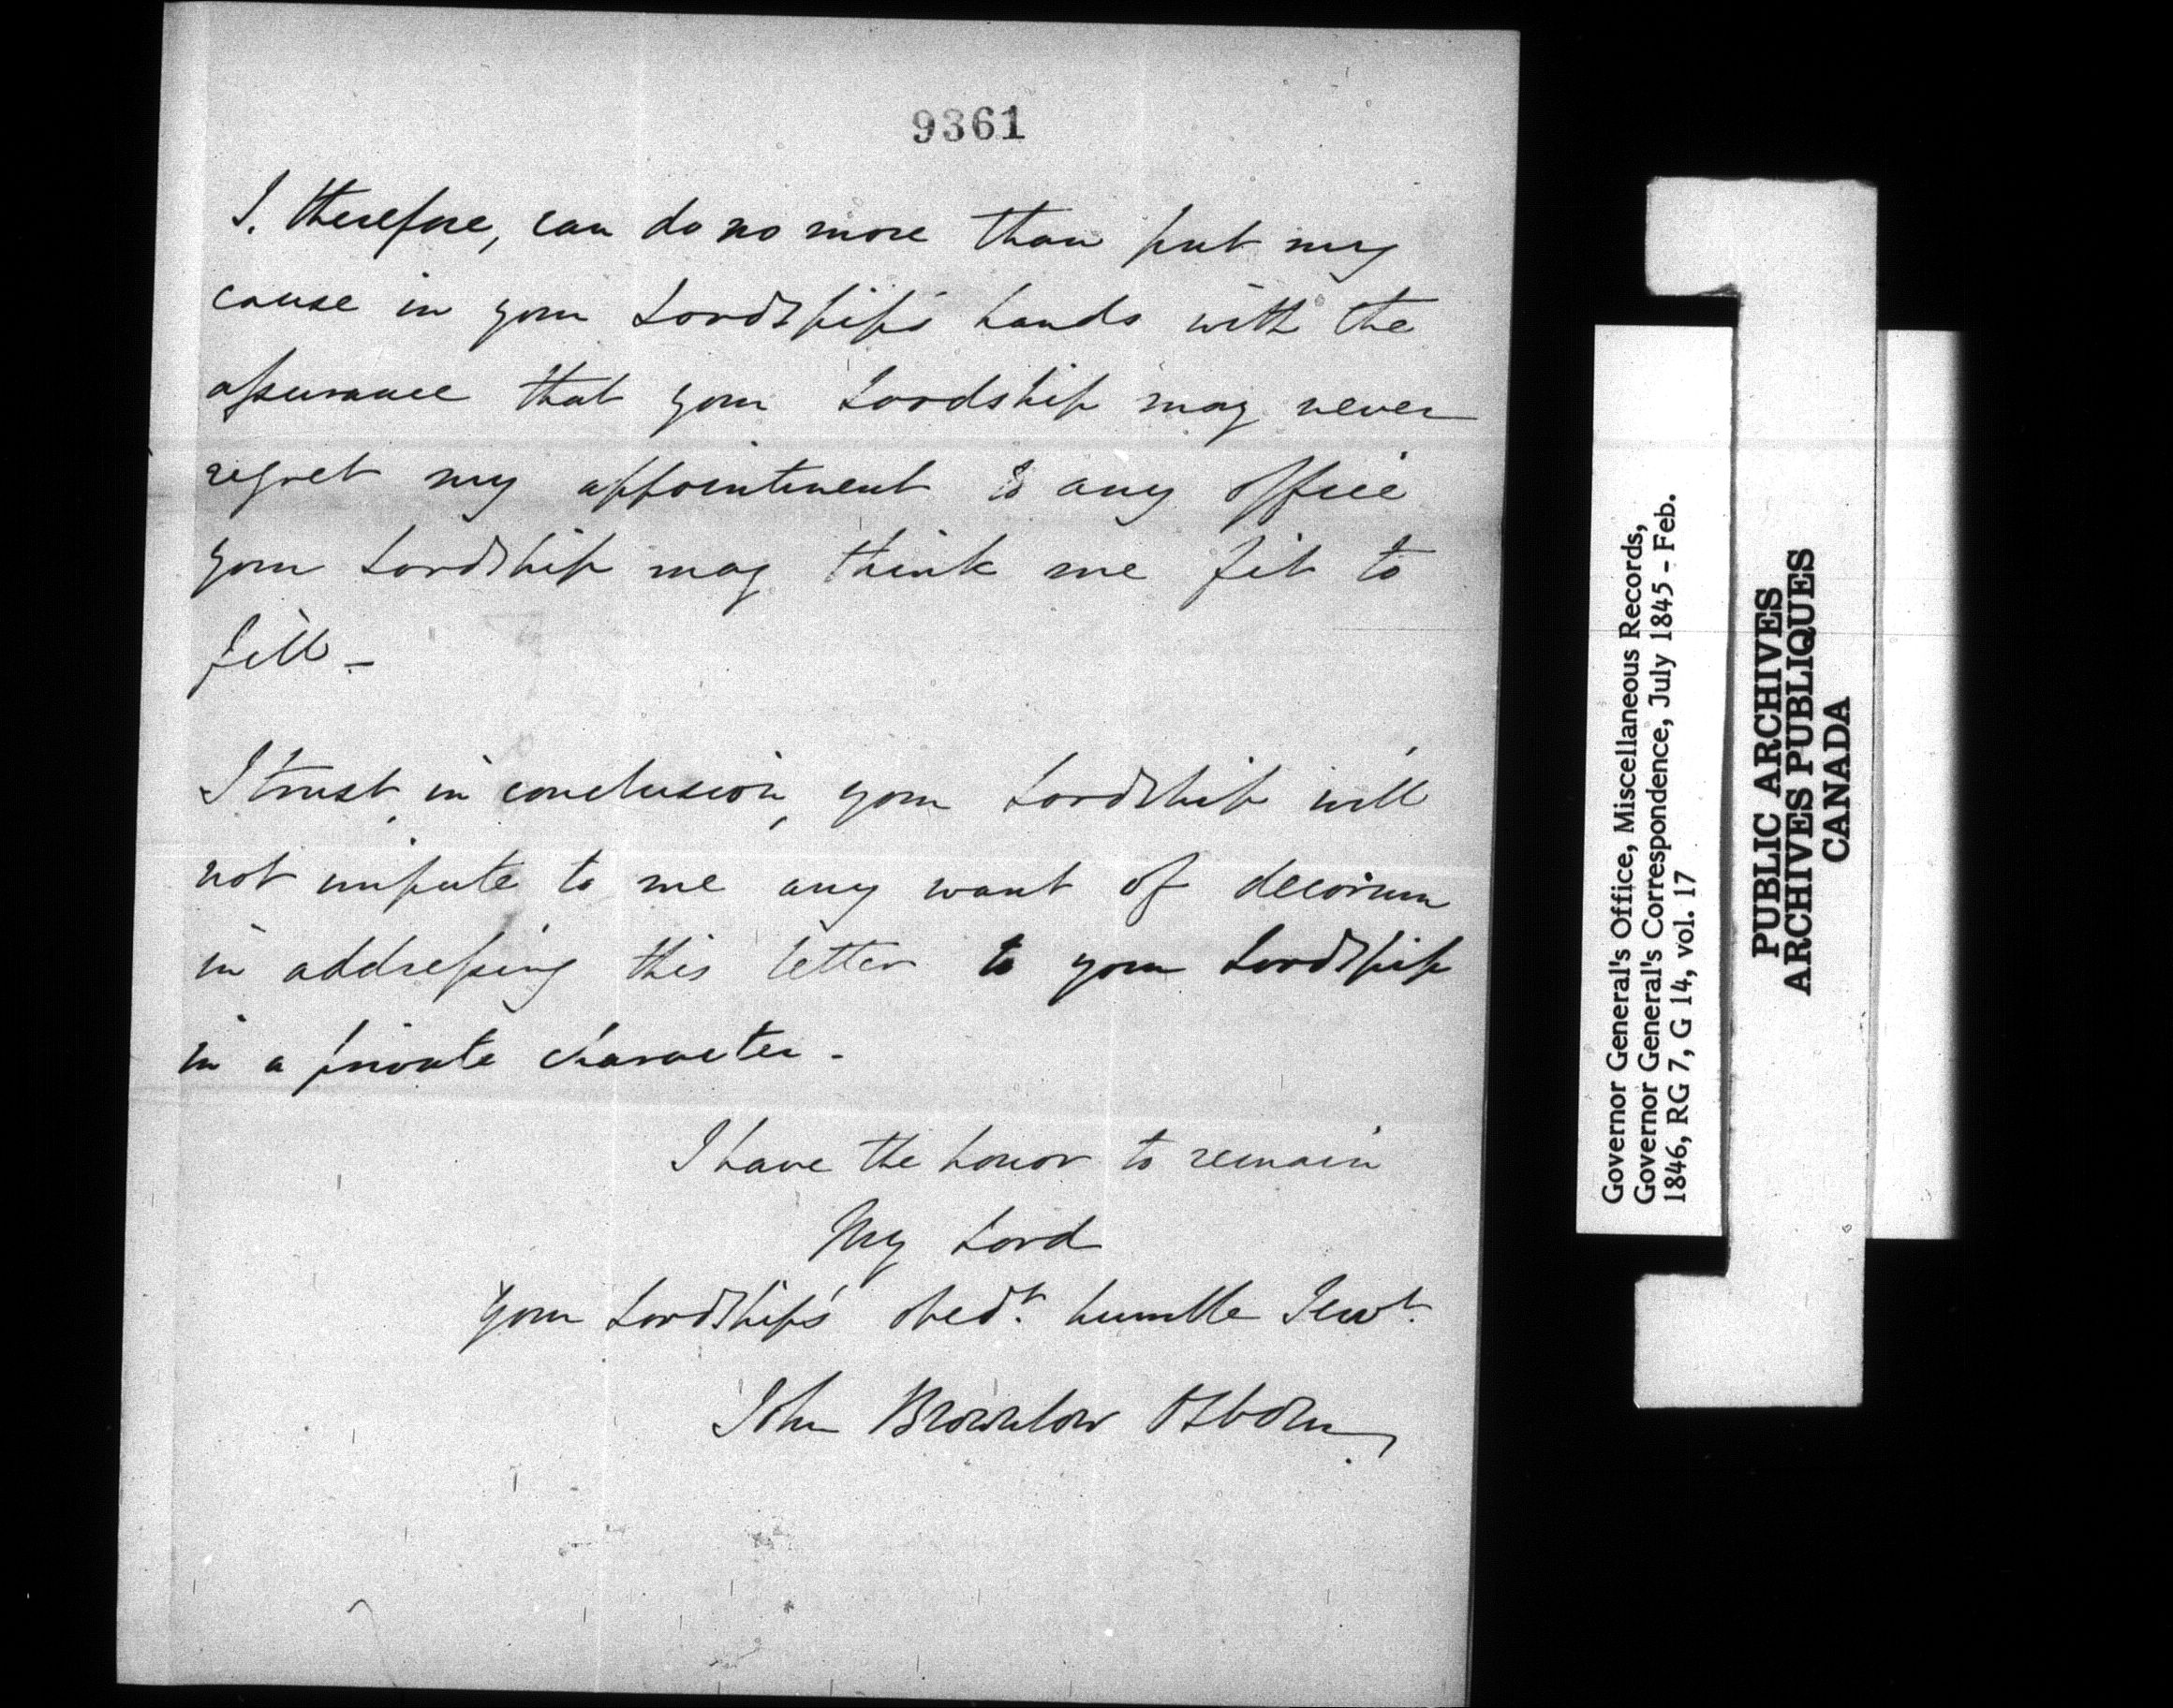 9361
I, therefore, can do no more than put my
cause in your Lordship's hands with the
assurance that your Lordship may never
regret my appointment to any office
your Lordship may think me fit to
fill –
I trust, in conclusion, your Lordship will
not impute to me any want of decorum
in addressing this letter to your Lordship
in a private character –
I have the honor to remain
My Lord
Your Lordship's obedt. humble Servt.
John Brownlow Osborn
Governor General's Office, Miscellaneous Records,
Governor General's Correspondence, July 1845 - Feb.
1846, RG 7, G 14, vol. 17
PUBLIC ARCHIVES
ARCHIVES PUBLIQUES
CANADA